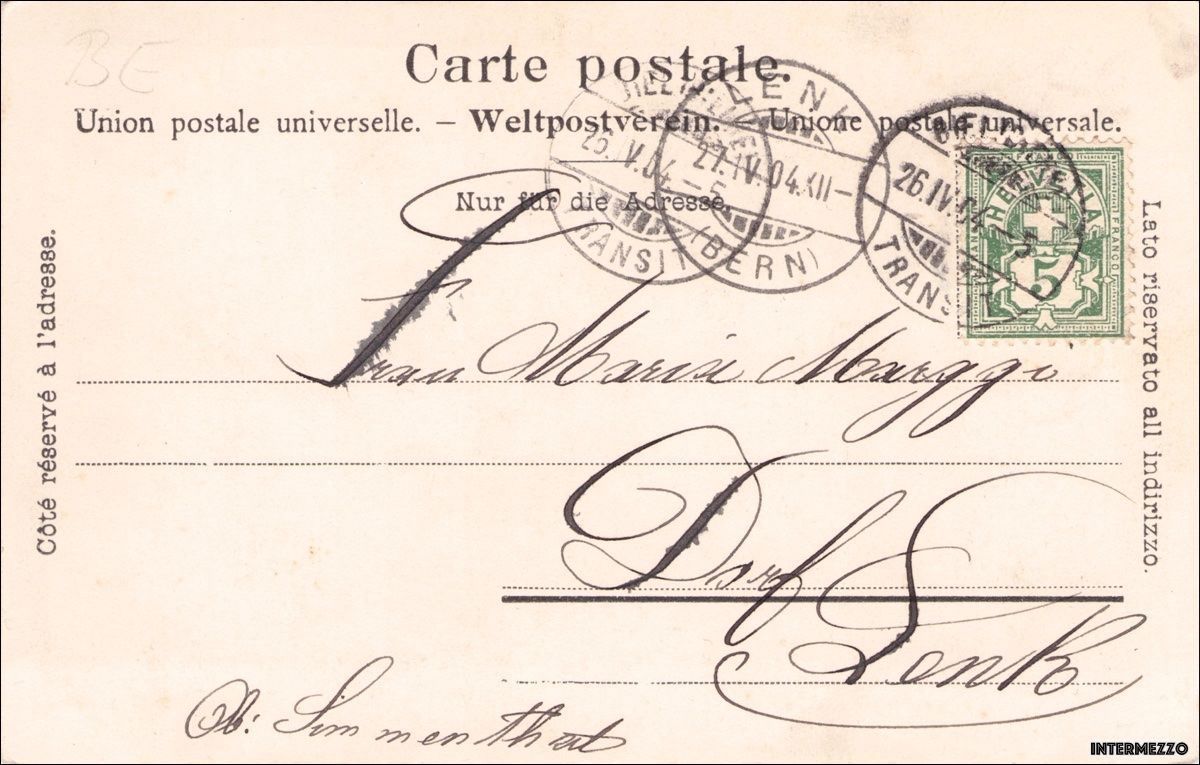 BE
Carte postale.
Union postale universelle. – Weltpostverein. – Unione postale universale.
Nur für die Adresse.
Côté réservé à l'adresse.
Lato riservato all indirizzo.
TRANSIT
27.IV.04.XII–
LENK
(BERN)
26.IV.04
TRANS
HELVETIA
FRANCO
5
Frau Maria Marggi
Dorf
Lenk
Ob: Simmenthal
INTERMEZZO